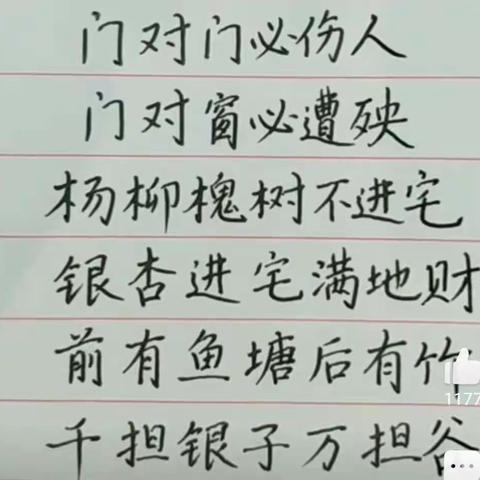 门对门必伤人
门对窗必遭殃
杨柳槐树不进宅
银杏进宅满地财
前有鱼塘后有竹
1177
千担银子万担谷